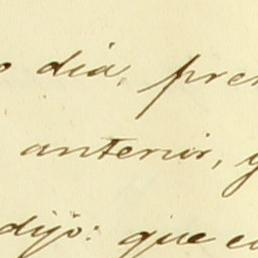 o dia, pre
anterior, y
dijo: que e